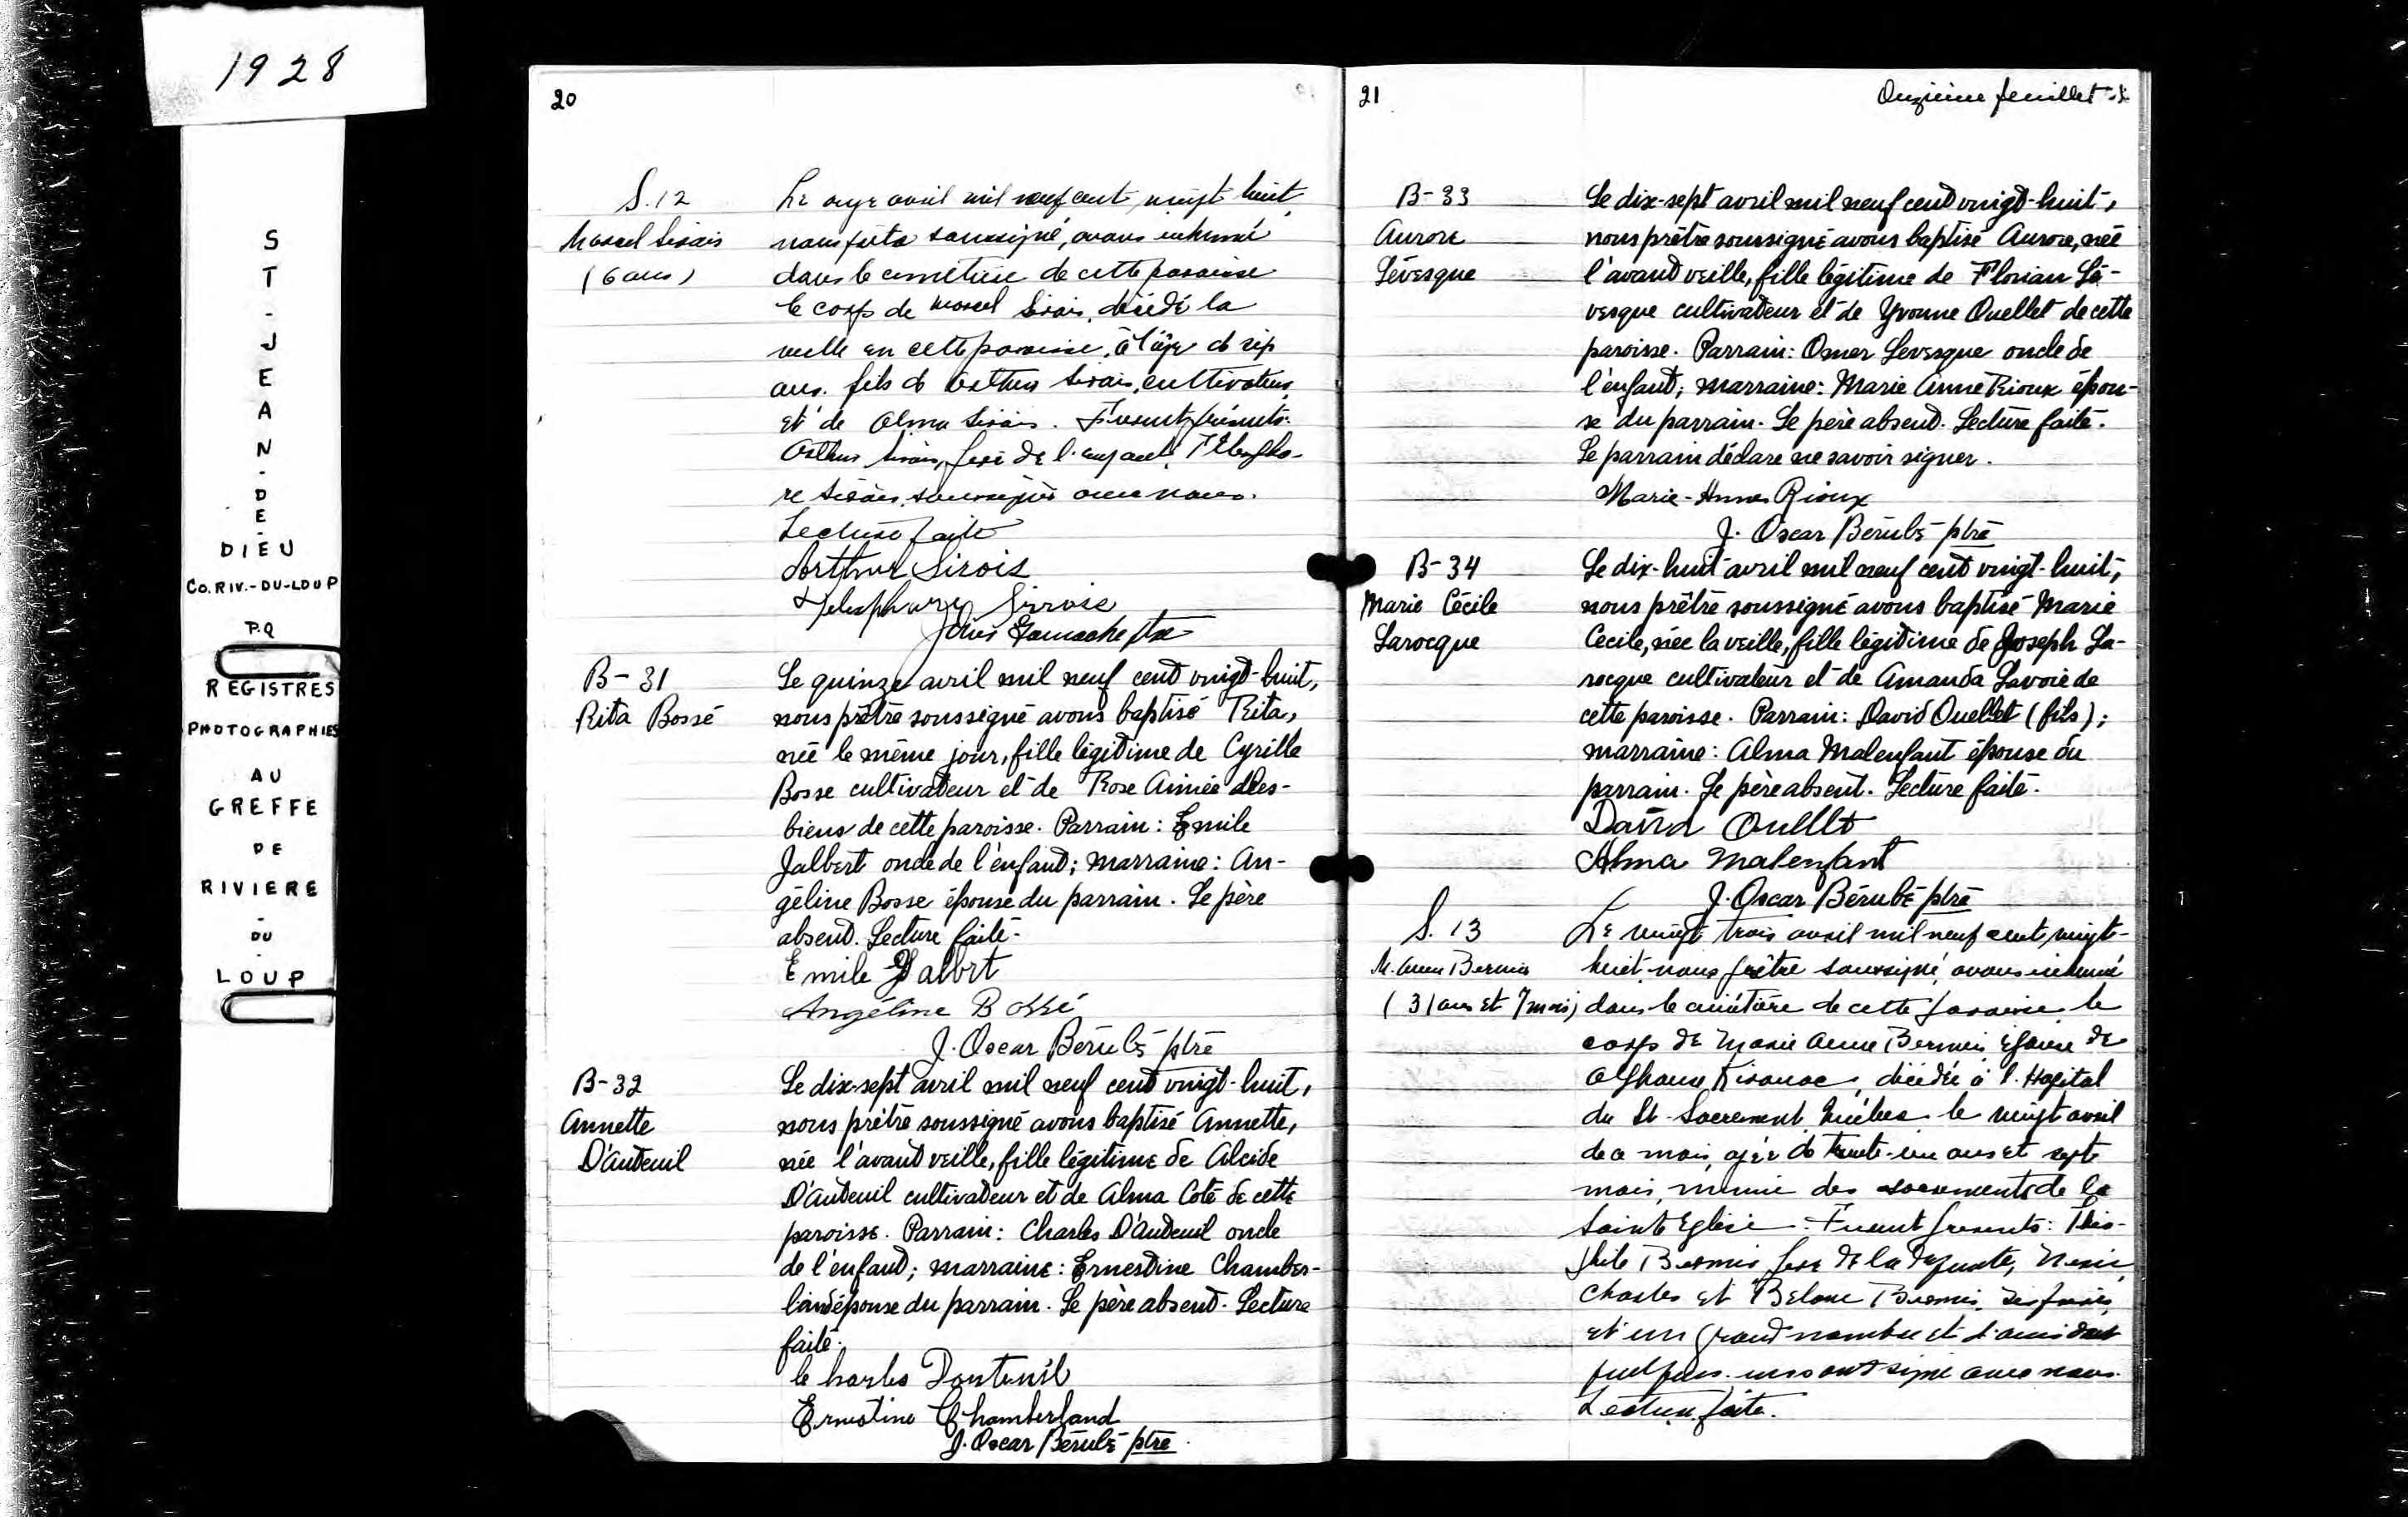 1928
ST-JEAN-DE-
DIEU
CO.RIV.-DU-LOUP
P.Q
REGISTRES
PHOTOGRAPHIES
AU
GREFFE
DE
RIVIERE
-
DU
-
LOUP
20
S.12
Marcel Sirois
(6 ans)
Le onze avril mil neuf cent vingt huit
nous ptre soussigné, avons inhumé
dans le cimetière de cette paroisse
le corps de Marcel Sirois, décédé la
veille en cette paroisse, à l'âge de six
ans. fils de Arthur Sirois, cultivateur,
et de Alma Sirois. Furent présents:
Arthur Sirois, père de l'enfant, Télespho-
re Sirois, soussignés avec nous.
Lecture faite
Arthur Sirois
Telesphore Sirrois
Gamache ptre
B-31
Rita Bossé
Le quinze avril mil neuf cent vingt-huit,
nous prêtre soussigné avons baptisé Rita,
née le même jour, fille légitime de Cyrille
Bosse cultivateur et de Rose Aimée
biens de cette paroisse. Parrain: Emile
Jalbert oncle de l'enfant; marraine: An-
géline Bosse épouse du parrain. Le père
absent. Lecture faite.
Emile Jalbrt
Angéline Bossé
J. Oscar Bérubé ptre
B-32
Annette
D'Auteuil
Le dix-sept avril mil neuf cent vingt-huit,
nous prêtre soussigné avons baptisé Annette,
née l'avant veille, fille légitime de Alcide
D'Auteuil cultivateur et de Alma Coté de cette
paroisse. Parrain: Charles D'Auteuil oncle
de l'enfant; marraine: Ernestine Chamber-
land épouse du parrain. Le père absent. Lecture
faite.
Charles Dauteuil
Ernestine Chamberland
J. Oscar Bérubé ptre.
21
Onzième feuillet
B-33
Aurore
Lévesque
Le dix-sept avril mil neuf cent vingt-huit,
nous prêtre soussigné avons baptisé Aurore, née
l'avant veille, fille légitime de Florian Lé-
vesque cultivateur et de Yvonne Ouellet de cette
paroisse. Parrain: Omer Levesque oncle de
l'enfant; marraine: Marie Anne Rioux épou-
se du parrain. Le père absent. Lecture faite.
Le parrain déclare ne savoir signer.
Marie-Anne Rioux
J. Oscar Bérubé ptre
B-34
Marie Cécile
Larocque
Le dix-huit avril mil neuf cent vingt-huit,
nous prêtre soussigné avons baptisé Marie
Cecile, née la veille, fille légitime de Joseph La-
rocque cultivateur et de Amanda Lavoie de
cette paroisse. Parrain: David Ouellet (fils);
marraine: Alma Malenfant épouse du
parrain. Le père absent. Lecture faite.
David Ouellet
Alma Malenfant
J. Oscar Bérubé ptre
S. 13
M. Anne Bernier
(31 ans et 7 mois)
Le vingt trois avril mil neuf cent vingt-
huit nous prêtre soussigné, avons inhumé
dans le cimetière de cette paroisse le
corps de Marie Anne Bernier, épouse de
Alphonse Kirouac, décédée à l'Hopital
du St-Sacrement, Québec le vingt avril
de ce mois, agée de trente-un ans et sept
mois, munie des sacrements de la
Sainte Eglise. Furent présents: Théo-
phile Bernier, père de la défunte,
Charles et Bernier, ses frères,
et un grand nombre et d'amis dont
quelques uns ont signé avec nous.
Lecture faite.